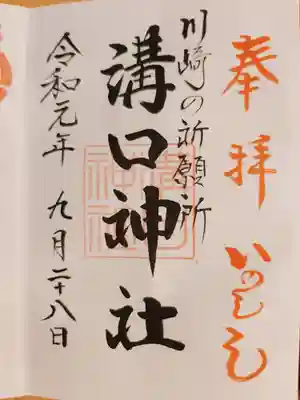 奉拝 いのしし
川崎の祈願所
溝口神社
令和元年 九月二十八日